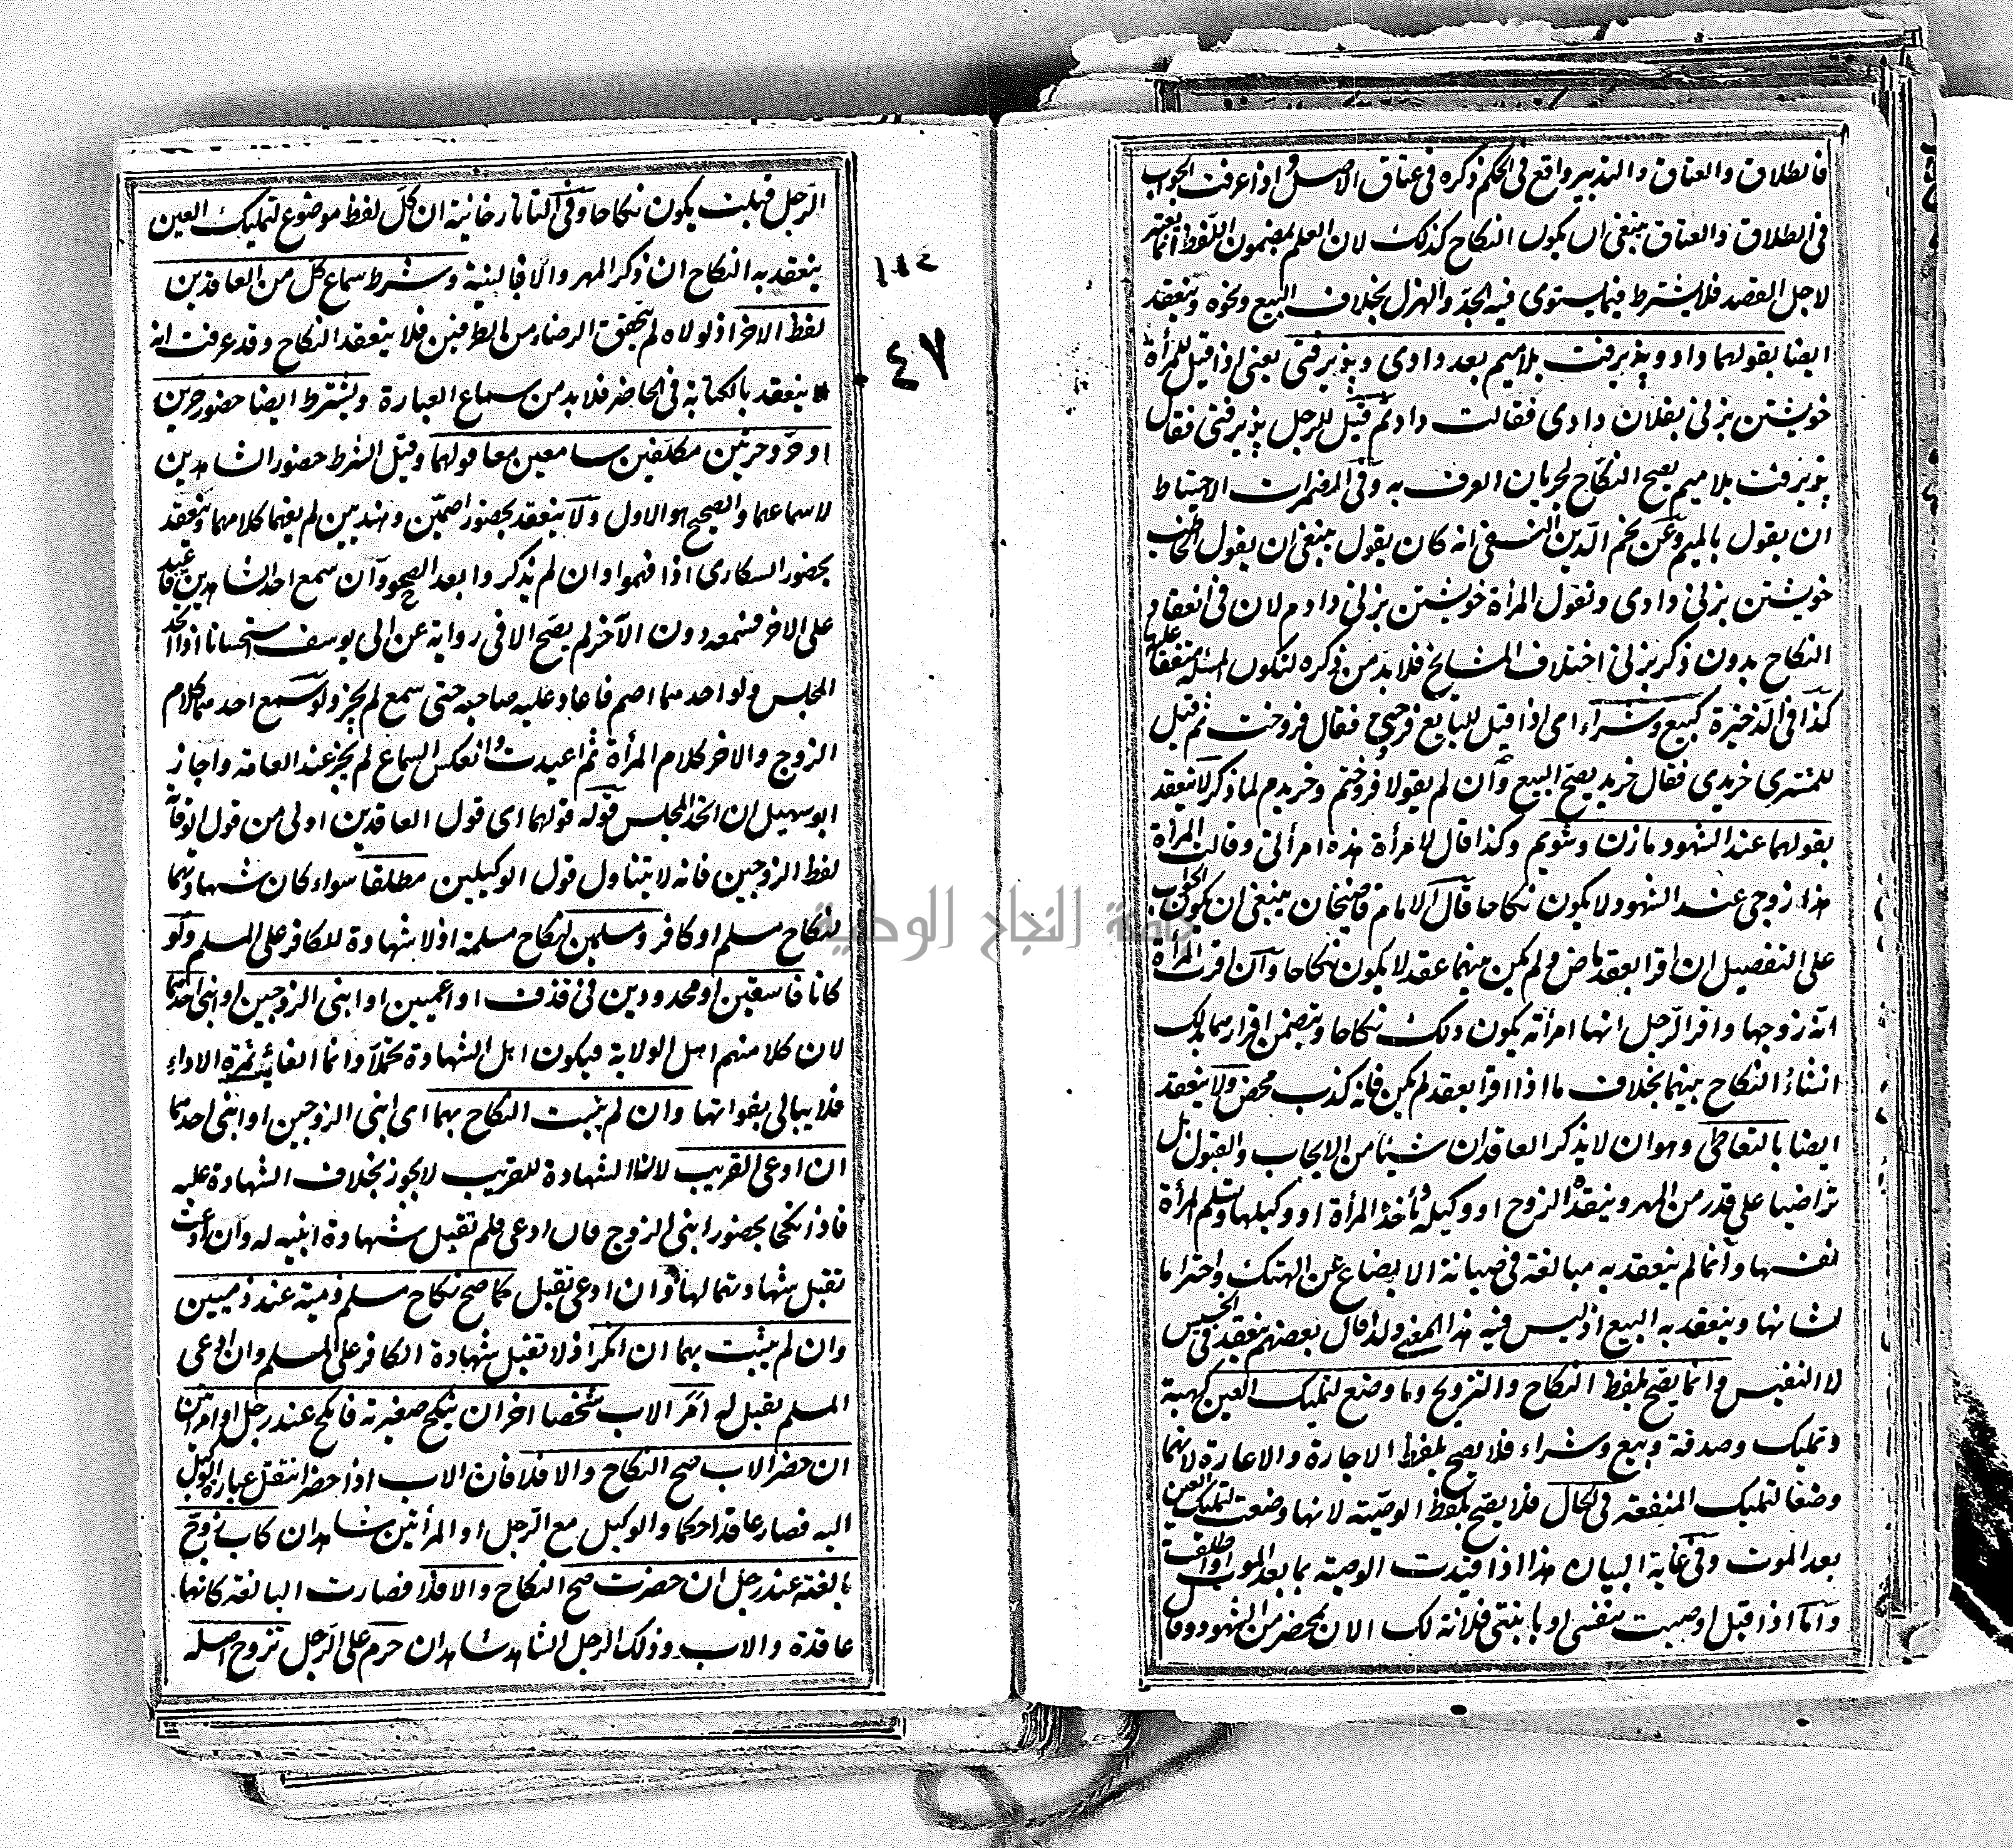 فالطلاق والعتاق والتدبير واقع في الحكم ذكره في عتاق الاصل واذا عرفت الجواب
في الطلاق والعتاق ينبغي ان يكون النكاح كذلك لان العلم بمضمون اللفظ انما يعتبر
لاجل القصد فلا يشترط فيما يستوى فيه الجد والهزل بخلاف البيع ونحوه وينعقد
ايضا بقولهما داد وپذيرفت بلا ميم بعد دادى وپذيرفتى يعنى اذا قيل للمرأة
خويشتن بزنى بفلان دادى فقالت داد ثم قيل للرجل پذيرفتى فقال
پذيرفت بلا ميم يصح النكاح لجريان العرف به وفي المضمرات الاحتياط
ان يقول بالميم وعن نجم الدين النسفى انه كان يقول ينبغى ان يقول الخاطب
خويشتن بزنى دادى وتقول المرأة خويشتن بزنى دادم لان في انعقاد
النكاح بدون ذكر بزنى اختلاف المشايخ فلا بد من ذكره لتكون المسئلة متفقا عليها
كذا في الذخيرة كبيع وشراء اى اذا قيل للبايع فروختى فقال فروخت ثم قيل
للمشترى خريدى فقال خريد يصح البيع وان لم يقولا فروختم وخريدم لما ذكر لا ينعقد
بقولهما عند الشهود ما زن وشويم وكذا قال لامرأة هذه امرأتى وقالت المرأة
هذا زوجى عند الشهود لا يكون نكاحا قال الامام قاضيخان ينبغى ان يكون الجواب
على التفصيل ان اقرا بعقد ماض ولم يكن بينهما عقد لا يكون نكاحا وان اقرت المرأة
انه زوجها واقر الرجل انها امرأته يكون ذلك نكاحا ويتضمن اقرارهما بذلك
انشاء النكاح بينهما بخلاف ما اذا اقرا بعقد لم يكن فانه كذب محض ولا ينعقد
ايضا بالتعاطى وهو ان لا يذكر العاقدان شيئا من الايجاب والقبول بل
تراضيا على قدر من المهر وينقده الزوج او وكيله وتأخذ المرأة او وكيلها وتسلم المرأة
نفسها وانما لم ينعقد به مبالغة في صيانة الابضاع عن الهتك واحتراما
لشانها وينعقد به البيع اذ ليس فيه هذا المعنى ولذا قال بعضهم ينعقد في الخسيس
لا النفيس وانما يصح بلفظ النكاح والتزويج وما وضع لتمليك العين كهبة
وتمليك وصدقة وبيع وشراء فلا يصح بلفظ الاجارة والاعارة لانهما
وضعا لتمليك المنفعة في الحال فلا يصح بلفظ الوصية لانها وضعت لتمليك العين
بعد الموت وفي غاية البيان هذا اذا قيدت الوصية بما بعد الموت او اطلقت
واما اذا قيل اوصيت بنفسى او بابنتى فلانة لك الان بحضر من الشهود وقال
الرجل قبلت يكون نكاحا وفي التاتارخانية ان كل لفظ موضوع لتمليك العين
ينعقد به النكاح ان ذكر المهر والا فالنية وشرط سماع كل من العاقدين
لفظ الاخر اذ لولاه لم يتحقق الرضاء من الطرفين فلا ينعقد النكاح وقد عرفت انه
ينعقد بالكتابة في الحاضر فلا بد من سماع العبارة ويشترط ايضا حضور حرين
٤٧
او حر وحرتين مكلفين سامعين معا قولهما وقيل الشرط حضور الشاهدين
لا سماعهما والصحيح هو الاول ولا ينعقد بحضور اصمين وهنديين لم يفهما كلامهما وينعقد
بحضور السكارى اذا فهموا وان لم يذكروا بعد الصحو وان سمع احد الشاهدين فاعيد
على الاخر فسمعه دون الآخر لم يصح الا في رواية عن ابى يوسف استحسانا اذا اتحد
المجلس ولو احدهما اصم فاعاد عليه صاحبه حتى سمع لم يجز ولو سمع احدهما كلام
الزوج والاخر كلام المرأة ثم اعيدت وانعكس السماع لم يجز عند العامة واجاز
ابو سهيل ان اتحد المجلس قوله قولهما اى قول العاقدين اولى من قول الوقاية
لفظ الزوجين فانه لا يتناول قول الوكيلين مطلقا سواء كان شهادتهما
لنكاح مسلم او كافر ومسلمين لنكاح مسلمة اذ لا شهادة للكافر على المسلم ولو
كانا فاسقين او محدودين في قذف او اعميين او ابنى الزوجين او ابنى احدهما
لان كلا منهم اهل الولاية فيكون اهل الشهادة تحملا وانما الفائت ثمرة الاداء
فلا يبالى بفواتها وان لم يثبت النكاح بهما اى ابنى الزوجين او ابنى احدهما
ان ادعى القريب لان الشهادة للقريب لا يجوز بخلاف الشهادة عليه
فاذا نكحا بحضور ابنى الزوج فان ادعى فلم تقبل شهادة ابنيه له وان ادعت
تقبل شهادتهما لها وان ادعى تقبل كما صح نكاح مسلم ذمية عند ذميين
وان لم يثبت بهما ان انكر اذ لا تقبل شهادة الكافر على المسلم وان ادعى
المسلم تقبل له امر الاب شخصا اخر ان ينكح صغيرته فانكح عند رجل او امرأتين
ان حضر الاب صح النكاح والا فلا فان الاب اذا حضر انتقل عبارة الوكيل
اليه فصار عاقدا حكما والوكيل مع الرجل او المرأتين شاهدان كاب زوج
بالغته عند رجل ان حضرت صح النكاح والا فلا فصارت البالغة كانها
عاقدة والاب وذلك الرجل الشاهد شاهدان حرم على الرجل تزوج اصله
جامعة النجاح الوطنية